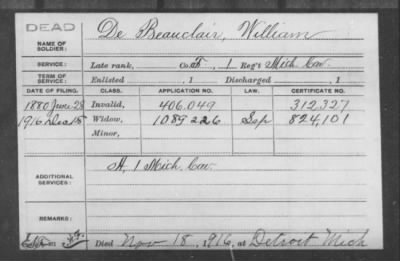 DEAD
NAME OF SOLDIER: De Beauclair, William
SERVICE: Late rank, Co. F, 1 Reg't Mich Cav.
TERM OF SERVICE: Enlisted , 1 Discharged , 1
DATE OF FILING. CLASS. APPLICATION NO. LAW. CERTIFICATE NO.
1880 June 28 Invalid, 406.049 312.327
1916 Dec 15 Widow, 1089226 824,101
Minor,
ADDITIONAL SERVICES: H, 1 Mich Cav.
REMARKS:
Died Nov 18, 1916, at Detroit Mich